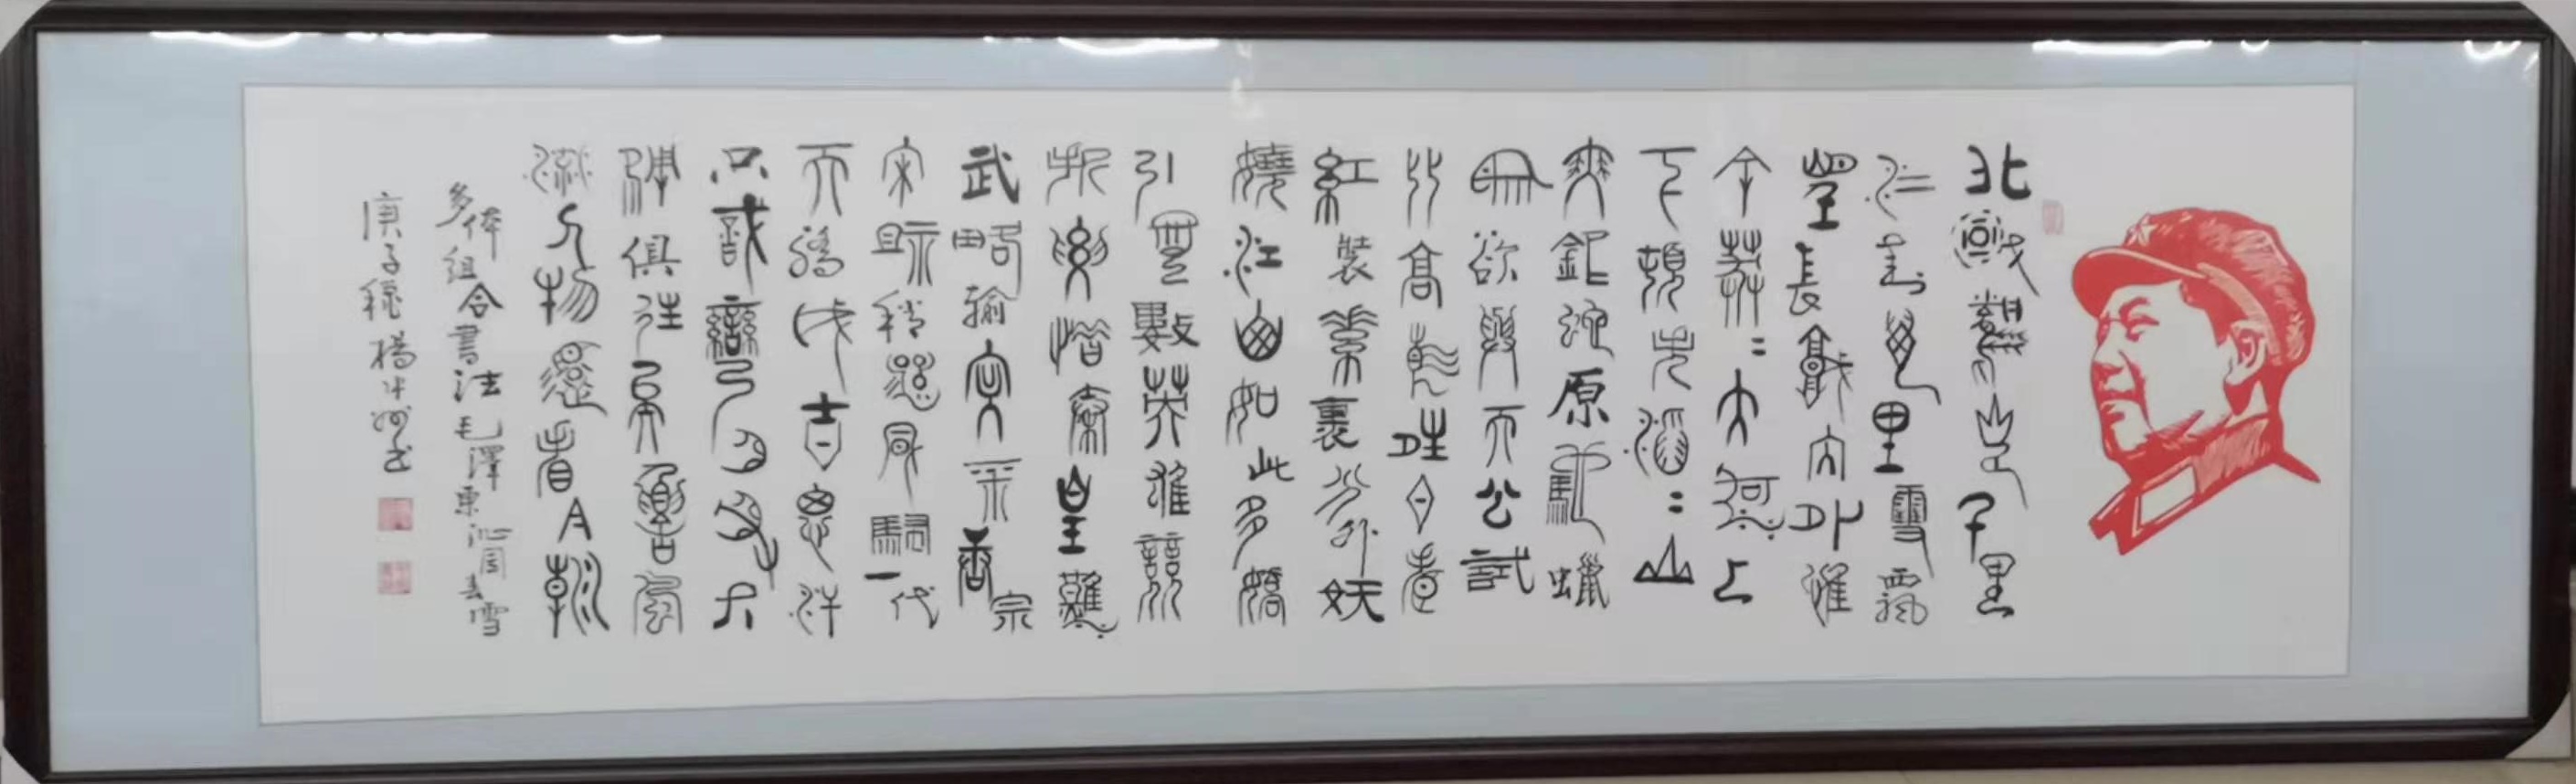 北國風光千里
冰封萬里雪飄
望長城内外惟
余莽〻大河上
下頓失滔〻山
舞銀蛇原馳蠟
象欲與天公試
比高須晴日看
紅裝素裹分外妖
嬈江山如此多嬌
引無數英雄競
折腰惜秦皇漢
武略輸文采唐宗
宋祖稍遜風騷一代
天驕成吉思汗
只識彎弓射大
雕俱往矣數風
流人物還看今朝
多体組合書法毛澤東沁园春雪
庚子穐楊书